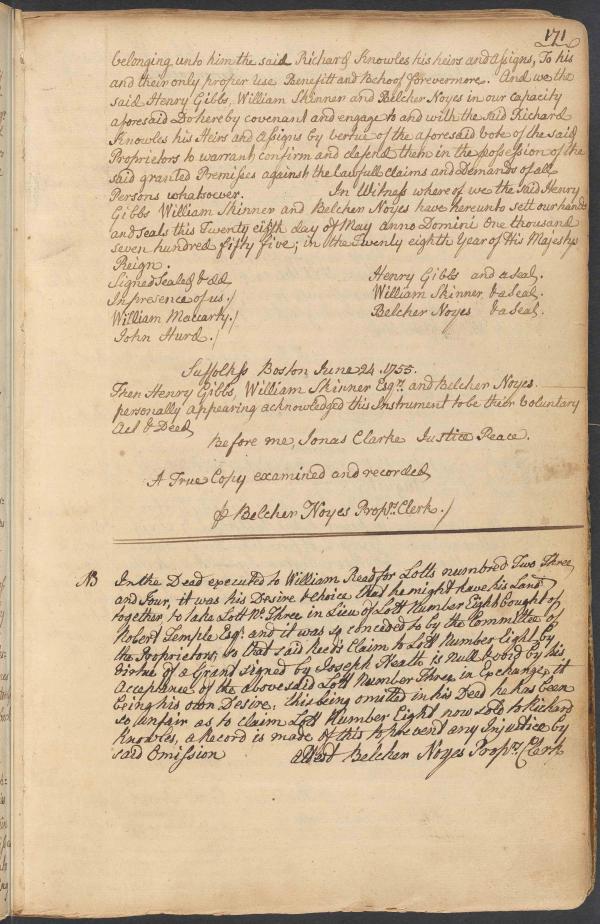 171
belonging unto him the said Richard Knowles his heirs and assigns, To his
and their only proper use Benefitt and Behoof forevermore. And we the
said Henry Gibbs, William Skinner and Belcher Noyes in our Capacity
aforesaid Do hereby covenant and engage to and with the said Richard
Knowles his Heirs and Assigns by vertue of the aforesaid vote of the said
Proprietors to warrant, confirm and defend them in the possession of the
said granted Premises against the lawfull claims and Demands of all
Persons whatsoever. In Witness whereof we the said Henry
Gibbs William Skinner and Belcher Noyes have hereunto sett our hands
and seals this Twenty eigth day of May anno Domini One thousand
seven hundred fifty five; in the Twenty eighth Year of His Majestys
Reign.
Signed Sealed & dd Henry Gibbs and a seal.
In presence of us./ William Skinner & a Seal.
William Maccarty./ Belcher Noyes & a Seal.
John Hurd./
Suffolk ss Boston June 24. 1755.
Then Henry Gibbs, William Skinner Esqrs. and Belcher Noyes
personally appearing acknowledged this Instrument to be their Voluntary
Act & Deed
Before me, Jonas Clarke Justice Peace.
A True Copy examined and recorded
℔ Belcher Noyes Proprs. Clerk./
NB In the Deed executed to William Read for Lotts numbred Two Three
and Four, it was his Desire & choice that he might have his Land
together, to take Lott No. Three in Lieu of Lott Number Eight bought of
Robert Temple Esq. and it was so conceded to by the Committee of
the Proprietors; so that said Reeds Claim to Lott Number Eight by
virtue of a Grand signed by Joseph Heath is null & void by his
Acceptance of the abovesaid Lott Number Three in Exchange, it
being his own Desire; this being omitted in his Deed he has been
so unfair as to Claim Lott Number Eight now sold to Richard
Knowles, a Record is made of this to prevent any Injustice by
said Omission attest Belcher Noyes Proprs. Clerk